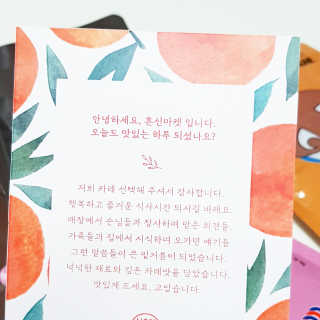 안녕하세요, 혼선마켓 입니다.
오늘도 맛있는 하루 되셨나요?
저희 카레 선택해 주셔서 감사합니다.
행복하고 즐거운 식사시간 되시길 바래요.
매장에서 손님들과 접시하며 받은 의견들,
가족들과 집에서 시식하며 오가던 얘기들
그런 말씀들이 큰 밑거름이 되었습니다.
넉넉한 재료와 깊은 카레맛을 담았습니다.
맛있게 드세요, 고맙습니다.